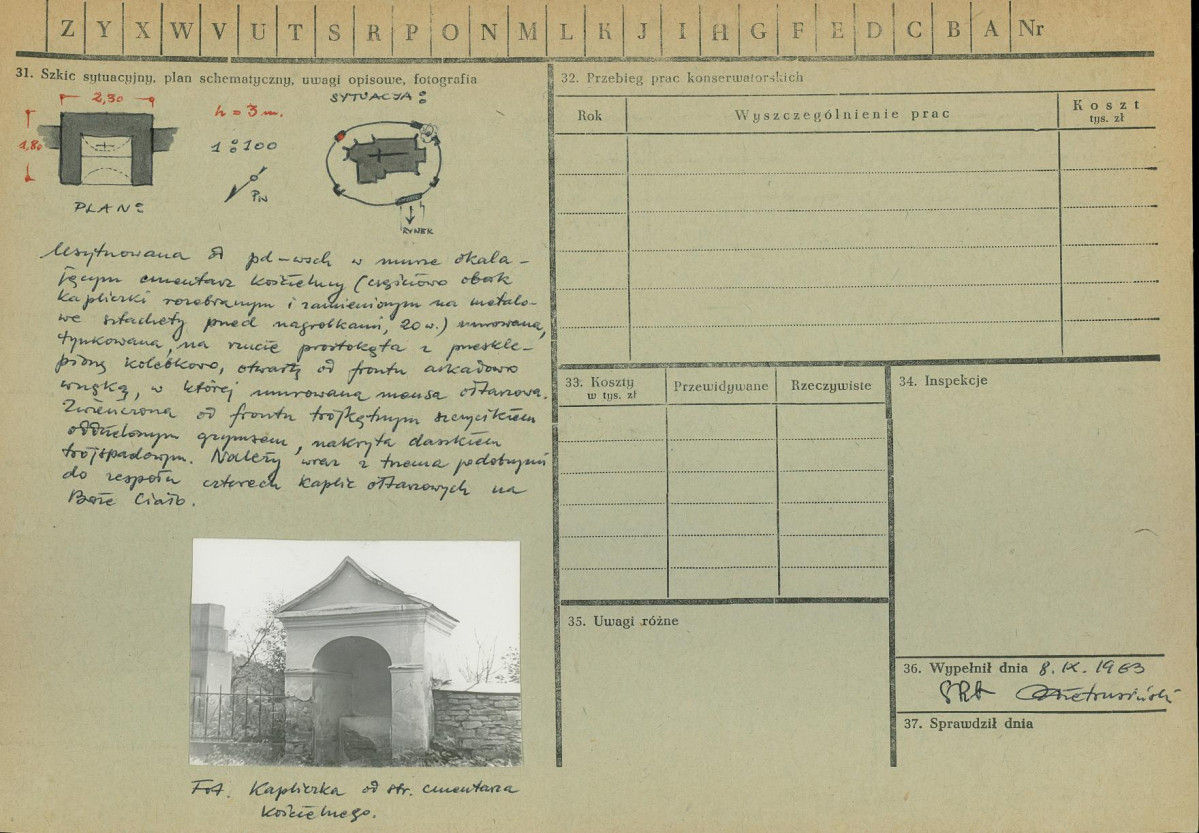 Z Y X W V U T S R P O N M L K J I H G F E D C B A Nr
31. Szkic sytuacyjny, plan schematyczny, uwagi opisowe, fotografia
2,30
1,80
h = 3 m.
1:100
PŁN
PLAN:
SYTUACJA:
RYNEK
Usytuowana od pd-wsch w murze okala-
jącym cmentarz kościelny (częściowo obok
kapliczki rozebranym i zamienionym na metalo-
we sztachety przed nagrobkami, 20 w.) murowana,
tynkowana, na rzucie prostokąta z przeskle-
pioną kolebkowo, otwartą od frontu arkadowo
wnęką, w której murowana mensa ołtarzowa.
Zwieńczona od frontu trójkątnym szczycikiem
oddzielonym gzymsem, nakryta daszkiem
trójspadowym. Należy wraz z trzema podobnymi
do zespołu czterech kaplic ołtarzowych na
Boże Ciało.
Fot. Kapliczka od str. cmentarza
kościelnego.
32. Przebieg prac konserwatorskich
Rok Wyszczególnienie prac Koszt
tys. zł
33. Koszty
w tys. zł
Przewidywane Rzeczywiste
34. Inspekcje
35. Uwagi różne
36. Wypełnił dnia 8. IX. 1963
37. Sprawdził dnia